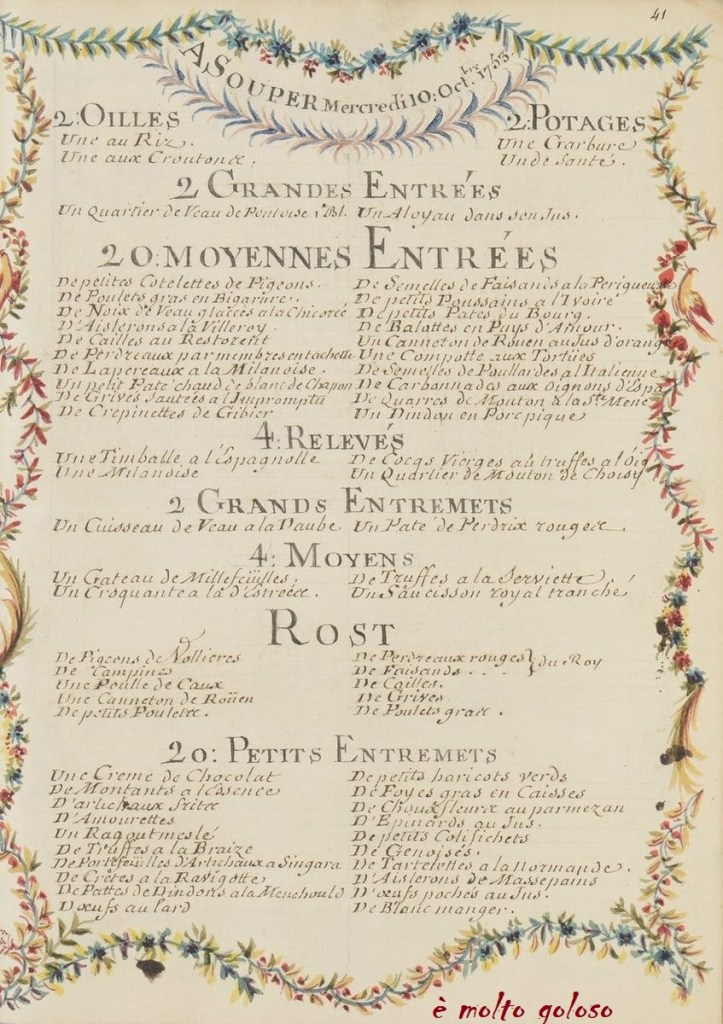 41
A SOUPER Mercredi 10: Oct.bre 1753.
2: OILLES
Une au Riz.
Une aux Croutons.
2: POTAGES
Une Garbure
Un de Santé.
2 GRANDES ENTRÉES
Un Quartier de Veau de Pontoise
Un Aloyau dans son Jus.
20: MOYENNES ENTRÉES
De petites Cotelettes de Pigeons.
De Poulets gras en Bigarure.
De Noix de Veau glacées a la Chicorée
D'Aislerons a la Villeroy.
De Cailles au Restorent
De Perdreaux par membres en
De Lapereaux a la Milanoise.
Un petit Paté chaud de blanc de Chappon
De Grives Sautées a l'Impromptu
De Crepinettes de Gibier
De Semelles de Faisands a la Perigueux
De petits Poussains a l'Ivoire
De petits Patés du Bourg.
De Balottes en Pays d'Amour.
Un Canneton de Rouen au Jus d'orange
Une Compotte aux Tortües
De Semelles de Poullardes a l'Italienne
De Carbonnades aux Oignons d'Espa
De Quarrés de Mouton a la Ste. Mene
Un Dindon en Porc pique
4: RELEVÉS
Une Timballe a l'Espagnolle
Une Milanoise
De Cocqs Vierges au truffes a l'Oig
Un Quartier de Mouton de Choisy
2 GRANDS ENTREMETS
Un Cuisseau de Veau a la Daube
Un Paté de Perdrix rouges.
4: MOYENS
Un Gateau de Millefeüilles.
Un Croquante a la d'Estrées.
De Truffes a la Serviette,
Un Saucisson royal tranché
ROST
De Pigeons de Vollieres
De Campines
Une Poulle de Caux
Une Canneton de Roüen
De petits Poulets.
De Perdreaux rouges
De Faisands... du Roy
De Cailles.
De Grives.
De Poulets gras.
20: PETITS ENTREMETS
Une Creme de Chocolat
De Montants a l'Essence
D'artichaux frits
D'Amourettes
Un Ragout meslé
De Truffes a la Braize
De Portefeüilles d'Artichaux a Singara
De Crêtes a la Ravigotte
De Pattes de Dindons a la Menehould
D'œufs au lard
De petits haricots verds
De Foyes gras en Caisses
De Chouxfleurs au parmezan
D'Epinards au Jus.
De petits Colifichets
De Genoises.
De Tartelettes a la Normande.
D'Aislerons de Massepains
D'œufs pochés au Jus.
De Blanc manger.
è molto goloso